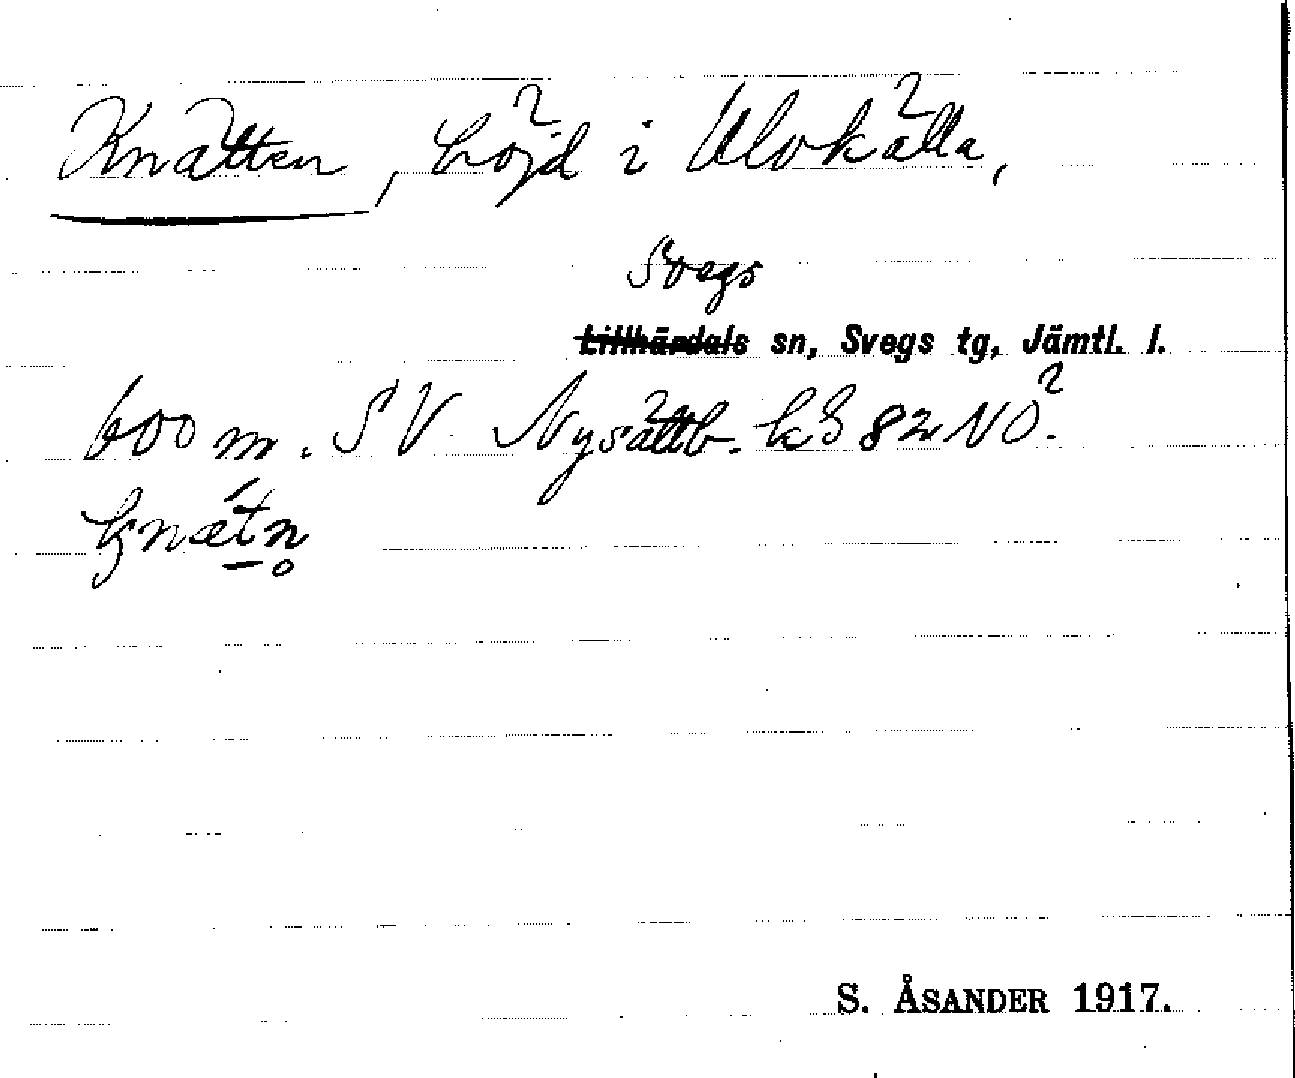 Knätten, höjd i Ulvkälla,
Svegs
~~Lillhärdals~~ sn, Svegs tg, Jämtl. l.
600 m. SV Nysättb. k§ 82 NO².
knætn̥
S. ÅSANDER 1917.